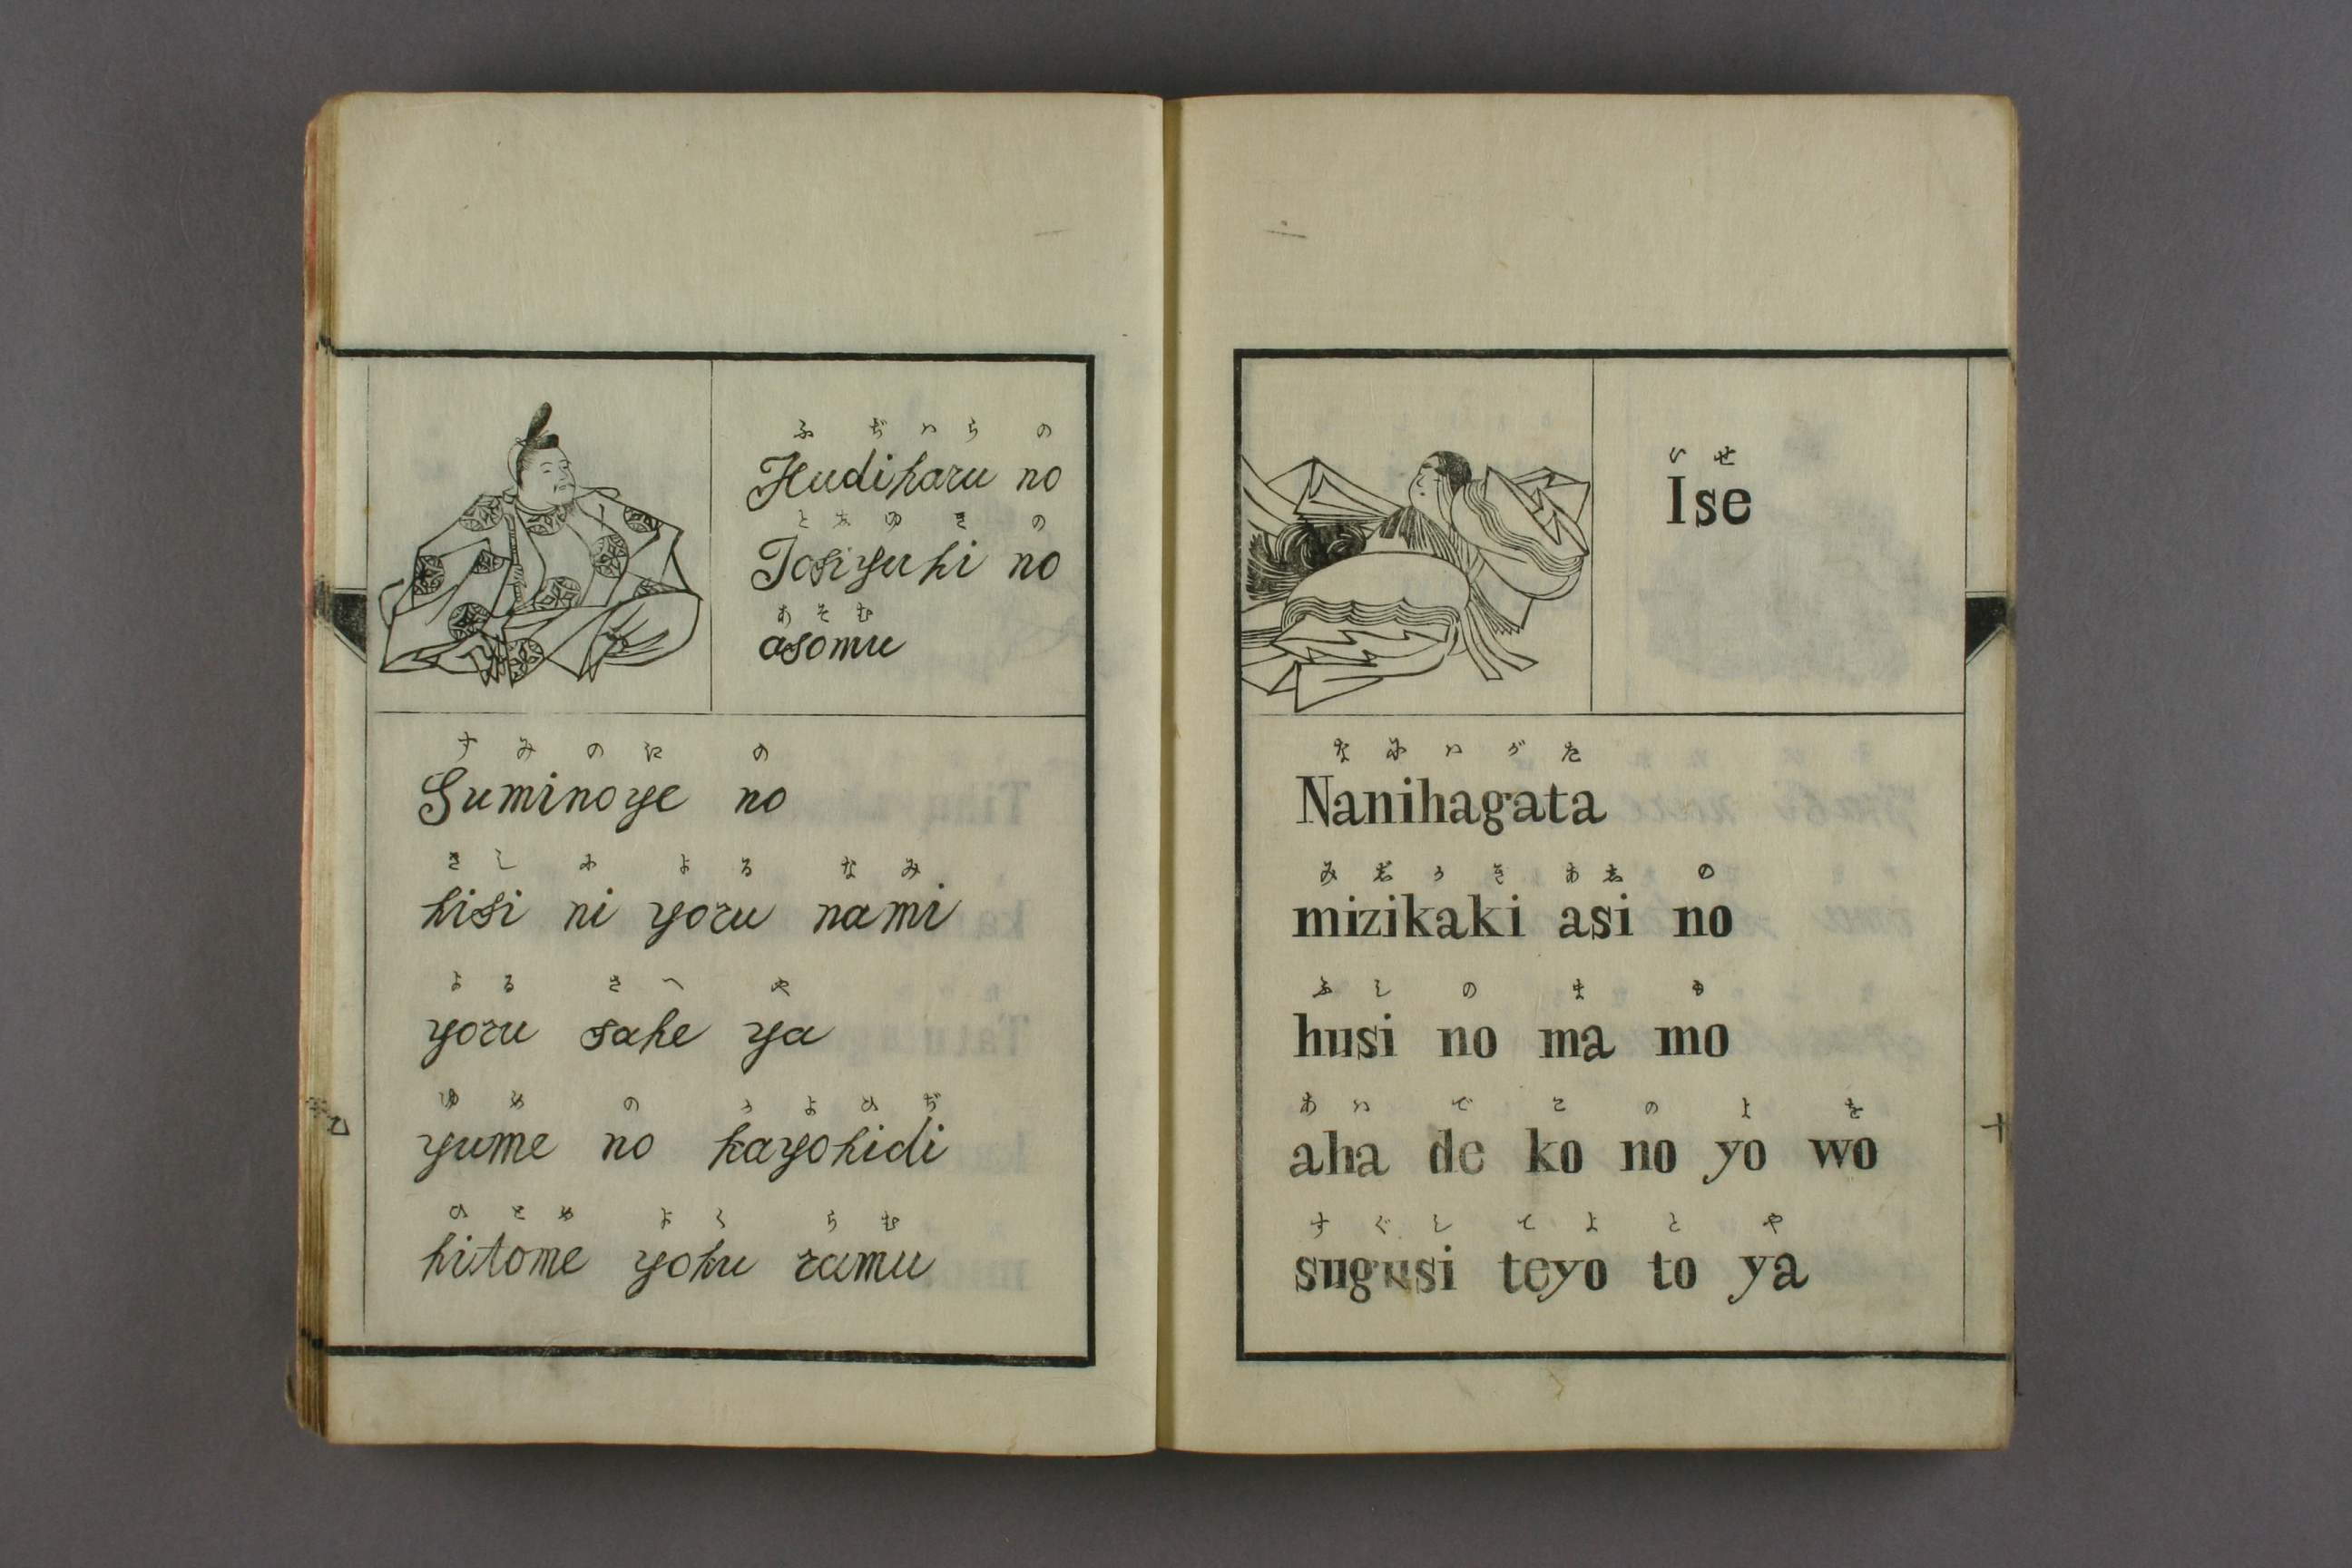 ふ ぢ ハ ら の
Hudiharu no
と 志 ゆ き の
Tosiyuki no
あ そ む
asomu
す み の 江 の
Suminoye no
き し に よ る な み
kisi ni yoru nami
よ る さ へ や
yoru sahe ya
ゆ め の か よ ひ ぢ
yume no kayohidi
ひ と め よ く ら む
hitome yoku ramu
い せ
Ise
な に ハ が た
Nanihagata
み じ か き あ 志 の
mizikaki asi no
ふ し の ま も
husi no ma mo
あ ハ で こ の よ を
aha de ko no yo wo
す ぐ し て よ と や
sugusi teyo to ya
十